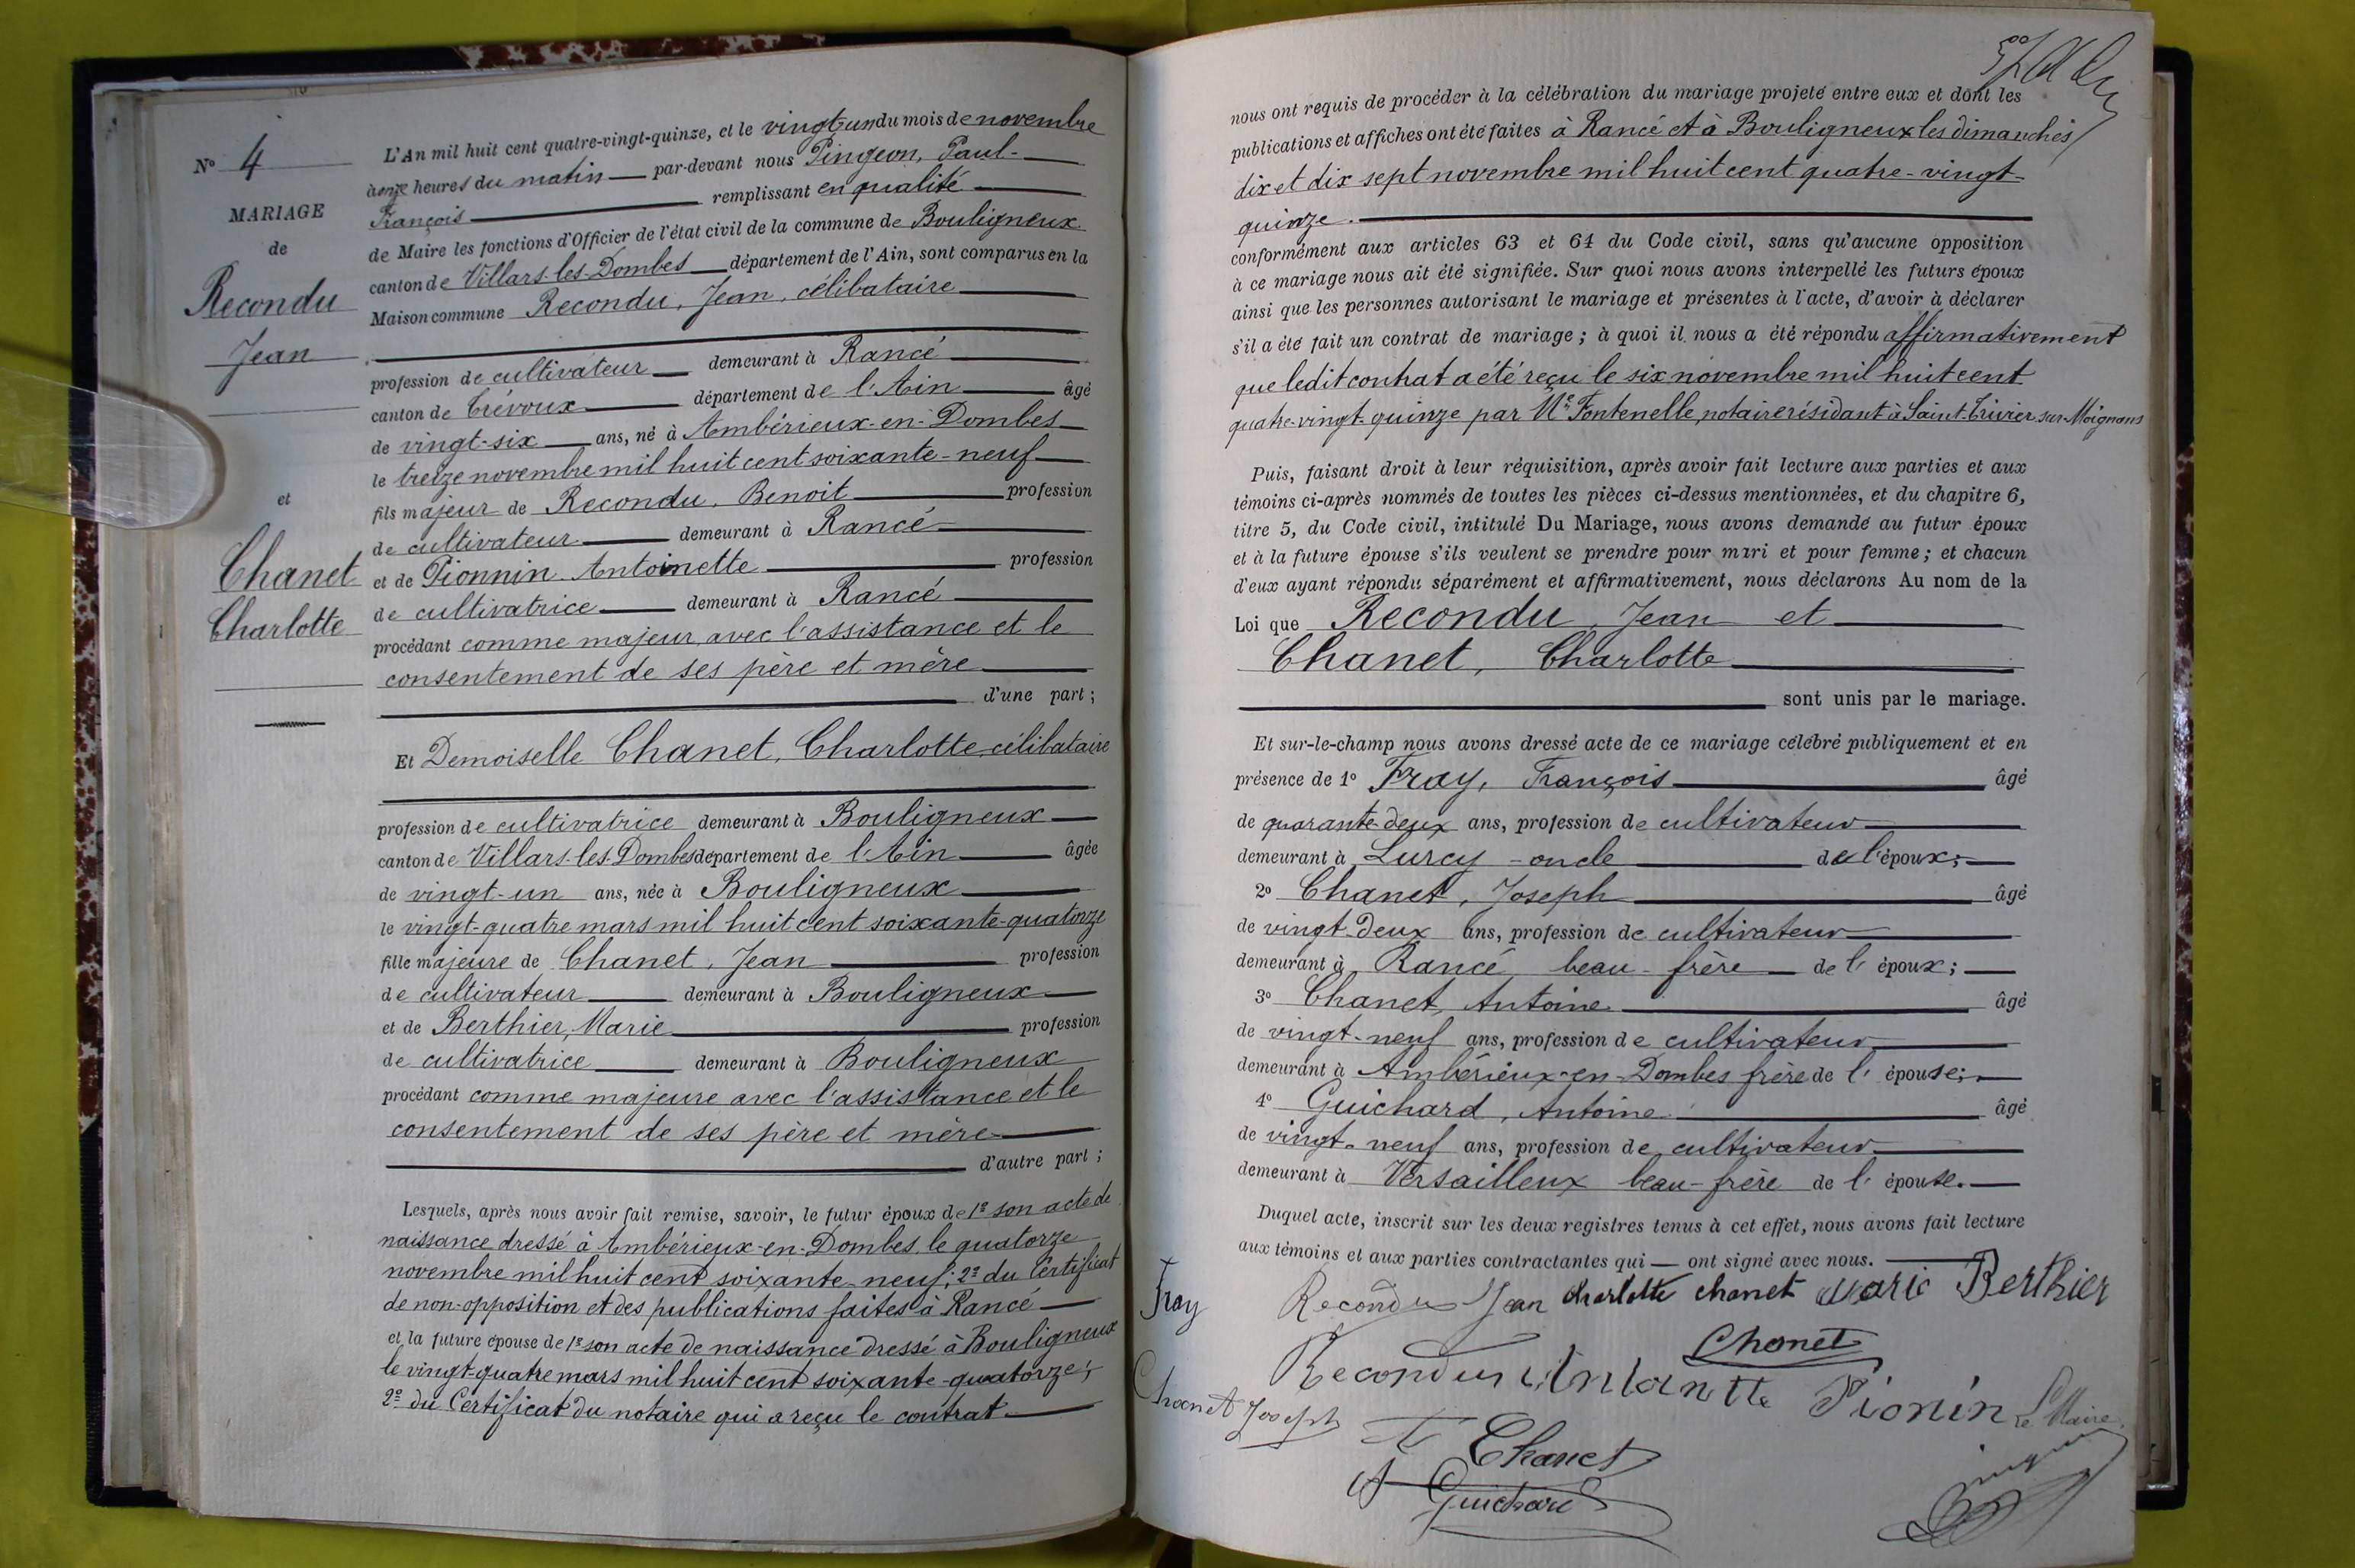 N° 4
MARIAGE
de
Recondu
Jean
et
Chanet
Charlotte
L'An mil huit cent quatre-vingt-quinze, et le vingt un du mois de novembre
à onze heures du matin par-devant nous Pingeon, Paul-
François remplissant en qualité
de Maire les fonctions d'Officier de l'état civil de la commune de Bouligneux
canton de Villars-les-Dombes département de l'Ain, sont comparus en la
Maison commune Recondu, Jean, célibataire
profession de cultivateur demeurant à Rancé
canton de Trévoux département de l'Ain âgé
de vingt-six ans, né à Ambérieux-en-Dombes
le treize novembre mil huit cent soixante-neuf
fils majeur de Recondu, Benoit profession
de cultivateur demeurant à Rancé
et de Pionnin Antoinette profession
de cultivatrice demeurant à Rancé
procédant comme majeur avec l'assistance et le
consentement de ses père et mère
d'une part ;
Et Demoiselle Chanet, Charlotte, célibataire
profession de cultivatrice demeurant à Bouligneux
canton de Villars-les-Dombes département de l'Ain âgée
de vingt-un ans, née à Bouligneux
le vingt-quatre mars mil huit cent soixante-quatorze
fille majeure de Chanet, Jean profession
de cultivateur demeurant à Bouligneux
et de Berthier, Marie profession
de cultivatrice demeurant à Bouligneux
procédant comme majeure avec l'assistance et le
consentement de ses père et mère
d'autre part ;
Lesquels, après nous avoir fait remise, savoir, le futur époux de 1° son acte de
naissance dressé à Ambérieux-en-Dombes le quatorze
novembre mil huit cent soixante-neuf ; 2° du Certificat
de non-opposition et des publications faites à Rancé
et la future épouse de 1° son acte de naissance dressé à Bouligneux
le vingt-quatre mars mil huit cent soixante-quatorze ;
2° du Certificat du notaire qui a reçu le contrat.
nous ont requis de procéder à la célébration du mariage projeté entre eux et dont les
publications et affiches ont été faites à Rancé et à Bouligneux les dimanches
dix et dix sept novembre mil huit cent quatre-vingt-
quinze.
conformément aux articles 63 et 64 du Code civil, sans qu'aucune opposition
à ce mariage nous ait été signifiée. Sur quoi nous avons interpellé les futurs époux
ainsi que les personnes autorisant le mariage et présentes à l'acte, d'avoir à déclarer
s'il a été fait un contrat de mariage ; à quoi il nous a été répondu affirmativement
que ledit contrat a été reçu le six novembre mil huit cent
quatre-vingt-quinze par Me Fontenelle, notaire résidant à Saint-Trivier-sur-Moignans
Puis, faisant droit à leur réquisition, après avoir fait lecture aux parties et aux
témoins ci-après nommés de toutes les pièces ci-dessus mentionnées, et du chapitre 6,
titre 5, du Code civil, intitulé Du Mariage, nous avons demandé au futur époux
et à la future épouse s'ils veulent se prendre pour mari et pour femme ; et chacun
d'eux ayant répondu séparément et affirmativement, nous déclarons Au nom de la
Loi que Recondu, Jean et
Chanet, Charlotte
sont unis par le mariage.
Et sur-le-champ nous avons dressé acte de ce mariage célébré publiquement et en
présence de 1° Fray, François âgé
de quarante-deux ans, profession de cultivateur
demeurant à Lurcy - oncle de l'époux ;
2° Chanet, Joseph âgé
de vingt-deux ans, profession de cultivateur
demeurant à Rancé beau-frère de l'époux ;
3° Chanet, Antoine âgé
de vingt-neuf ans, profession de cultivateur
demeurant à Ambérieux-en-Dombes frère de l'épouse ;
4° Guichard, Antoine âgé
de vingt-neuf ans, profession de cultivateur
demeurant à Versailleux beau-frère de l'épouse.
Duquel acte, inscrit sur les deux registres tenus à cet effet, nous avons fait lecture
aux témoins et aux parties contractantes qui ont signé avec nous.
Fray Recondu Jean charlotte chanet Marie Berthier
Chanet
Recondu Antoinette Pionin Le Maire
Chanet Joseph
A Chanet
A Guichard
Pingeon